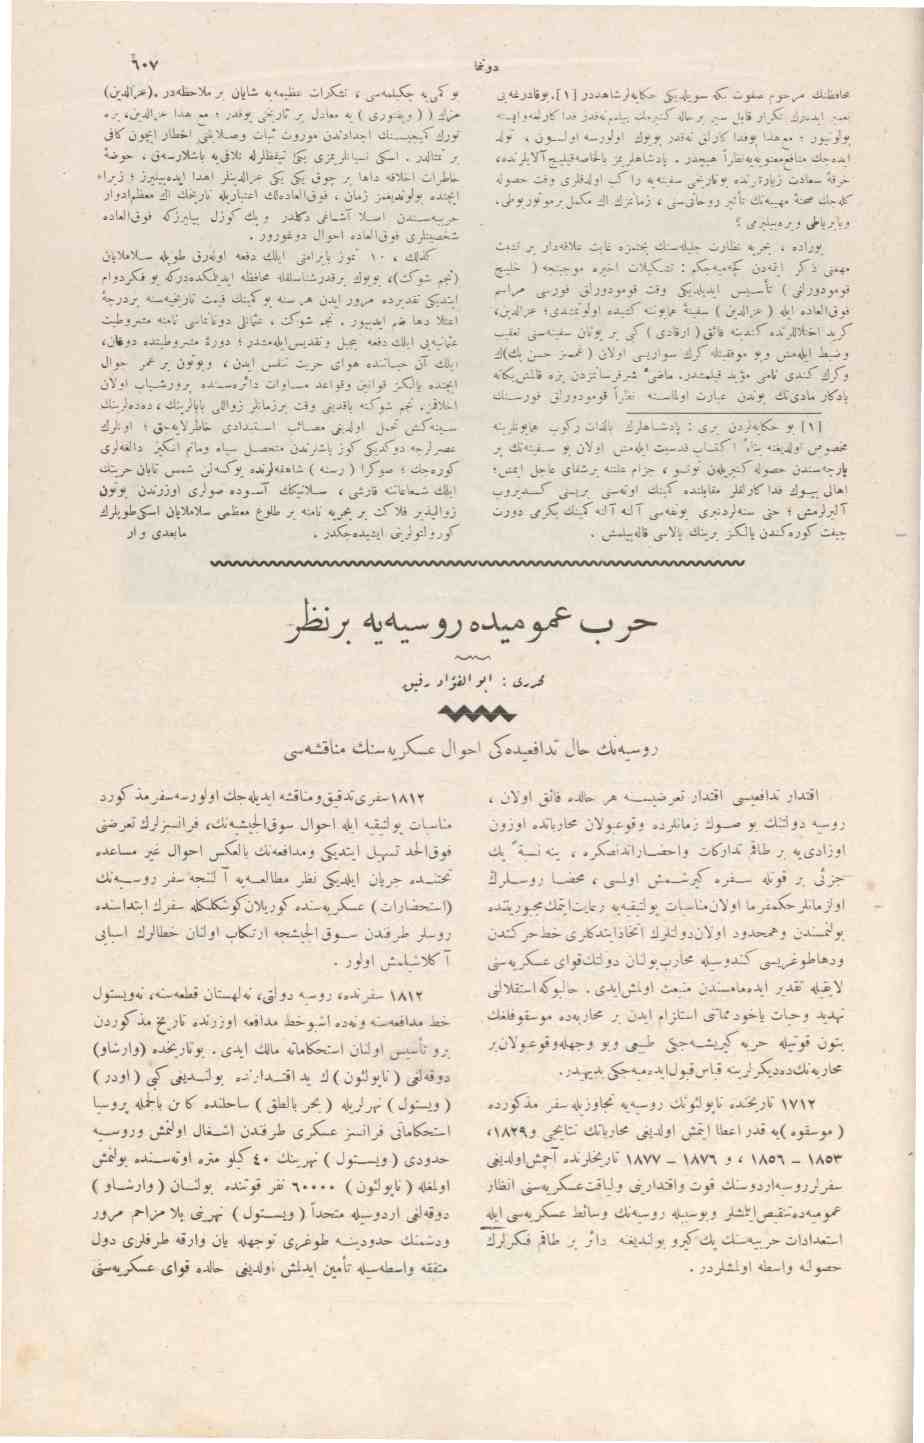 دوننما
٦٠٧
محافظنك مرحوم صفوت بكه سويلديكى حكايه‌لر شاهددر [١]. بوقادرغه‌يى
تعمير ايده‌رك تكرار قابل سير برحاله كتيرمك بيلم نه‌قدر فدا كارلغه وابسته
بولونيور ؛ مع‌هذا بوفدا كارلق نه‌قدر بويوك اولورسه اولسون ، تولد
ايده‌جك منافع معنويه‌يه نظراً هيچدر . پادشاهلرمز بالخاصه قيليج آلايلرنده،
خرقهٔ سعادت زيارتلرنده بو تاريخى سفينه‌يه راكب اولدقلرى وقت حصوله
كله‌جك صحنهٔ مهيبه‌نك تأثير روحانيسنى ، زمانمزك اك مكمل برموتوربوطى،
ويابرياطى ويره‌بيليرمى ؟
بوراده ، بحريه نظارت جليله‌سنك بحثمزه غايت علاقه‌دار بر تشبث
مهمنى ذكر ايتمه‌دن كچميه‌جكم : تشكيلات اخيره موجبنجه ( خليج
قومودورلغى ) تأسيس ايديلديكى وقت قومودورلق فورسى مراسم
فوق‌العاده ايله ( عزالدين ) سفينهٔ همايوننه كشيده اولونمشدى؛ عزالدين،
كريد اختلاللرنده كندينه فائق ( ارقادى ) كبى بر يونان سفينه‌سنى تعقيب
وضبط ايله‌مش وبو موفقيتله كرك سواريسى اولان ( حسن بك)ك
وكرك كندى نامنى مؤبد قيلمشدر. ماضىء شرفرسانزدن بزه قالمش يكانه
يادكار مادينك بوندن عبارت اولماسنه نظراً قومودورلق فورسنك
[١] بو حكايه‌لردن برى : پادشاهلرك بالذات ركوب همايونلرينه
مخصوص اولديغنه بناءً اكتساب قدسيت ايله‌مش اولان بو سفينه‌نك بر
پارچه‌سندن حصوله كتيريلن توتسو ، جزام علتنه برشفاى عاجل ايمش؛
اهالى بيوك فدا كارلقلر مقابلنده كمينك اوته‌سنى بريسنى كسديروب
آليرلرمش ؛ حتى سنه‌لردنبرى بونفه‌سى آلنه آلنه كمينك يكرمى دورت
چيفت كوره‌كندن يالكز برينك پالاسى قاله‌بيلمش .
بو كمى‌يه چكيلمه‌سى ، تشكرات عظيمه‌يه شايان بر ملاحظه‌در .(عزالدين)
( ويقتورى ) يه معادل بر تاريخى يوقدر ؛ مع هذا عزالدين، بزه
تورك كميجيسنك اجدادندن موروث ثبات وصلابتنى اخطار ايچون كافى
بر تمثالدر . اسكى انسانلرمزى يكى تيقظلرله تلاقى‌يه باشلارسه‌ق ، حوضهٔ
خاطرات اخلافه داها بر چوق يكى يكى عزالدينلر اهدا ايده‌بيليرز ؛ زيرا،
ايچنده بولوندیغمز زمان ، فوق‌العاده‌لك اعتباريله تاريخك اك معظم ادوار
حربيه‌سندن اصلا آشاغى دكلدر وپك كوزل بيليرزكه فوق‌العاده
شخصيتلرى فوق‌العاده احوال دوغورور .
كذلك ، ١٠ تموز بايرامنى ايلك دفعه اوله‌رق طوپله سلاملايان
(نجم شوكت)، بويوك برقدرشناسلقله محافظه ايديلمكده‌دركه بو فكردوام
ايتديكى تقديرده مرور ايدن هر سنه بو كمينك قيمت تاريخيه‌سنه بردرجهٔ
اعتلا دها ضم ايديور . نجم شوكت ، عثمانلى دونانماسى نامنه مشروطيت
عثمانيه‌يى ايلك دفعه تبجيل وتقديس ايله‌مشدر ؛ دورهٔ مشروطيتده دوغان،
ايلك آن حياتنده هواى حريت تنفس ايدن ، وبوتون بر عمر جوال
ايچنده يالكز قوانين وقواعد مساوات دائره‌سنده پرورشياب اولان
اخلافمز، نجم شوكته باقدينى وقت برزمانلر زواللى بابالرينك ، دده‌لرينك
سينه‌كش تحمل اولدينى مصائب استبدادى خاطرلايه‌جق ؛ اونلرك
عصرلرجه دوكديكى كوز ياشارندن متحصل سياه وماتم انكيز دالغه‌لرى
كوره‌جك ؛ صوكرا ( رسنه ) شاهقه‌لرنده يوكسه‌لن شمس تابان حريتك
ايلك شعاعاتنه قارشى ، سلانيكك آسوده صولرى اوزرندن بوتون
زواليذير فلاكت بر بحريه نامنه بر طلوع معظمى سلاملايان اسكى‌طوپلرك
كورولتولرينى ايشيده‌جكدر .
مابعدى وار
حرب عموميده روسيه‌يه برنظر
محررى : ابو الفؤاد رفيق
روسيه‌نك حال تدافعيده‌كى احوال عسكريه‌سنك مناقشه‌سى
اقتدار تدافعيسى اقتدار تعرضيسنه هر حالده فائق اولان ،
روسيه دولتنك بو صوك زمانلرده وقوعبولان محارباتده اوزون
اوزادى‌يه بر طاقم تداركات واحضاراتدنصكره ، ينه نسبةً پك
جزئى بر قوتله سفره كيرشمش اولمسى ، محضا روسلرك
اوزمانلر حكمفرما اولان مناسبات پولتيقيه‌يه رعايت ايتمك مجبوريتنده
بولنمسندن وهمحدود اولان دولتلرك اتخاذ ايتدكلرى خط حركتدن
ودها طوغريسى كندوسيله محارب بولنان دولتك قواى عسكريه‌سنى
لايقيله تقدير ايده‌مامسندن منبعث اولمش ايدى . حالبوكه استقلالنى
تهديد وحيات ياخود مماتنى استلزام ايدن بر محاربه‌ده موسقوفلغك
بتون قوتيله حربه كيريشه‌جكى طبيعى وبو وجهله وقوعبولان بر
محاربه‌نك ده ديكرلرينه قياس قبول ايده‌ميه‌جكى بديهيدر.
١٧١٢ تاريخنده ناپولئونك روسيه‌يه تجاوزيله سفر مذكورده
( موسقوه ) يه قدر اعطا ايتمش اولدينى محارباتك نتايجى و١٨٢٩،
١٨٥٣ – ١٨٥٦ ، و ١٨٧٦ – ١٨٧٧ تاريخلرنده آچمش اولدينى
سفرلر روسيه اردوسنك قوت واقتدارينى ولياقت عسكريه‌سنى انظار
عموميه‌ده تنقيص ايتمشلر وبوسببله روسيه‌نك وسائط عسكريه‌سى ايله
استعدادات حربيه‌سنك پك كيرو بولنديغنه دائر بر طاقم فكرلرك
حصولنه واسطه اولمشلردر .
١٨١٢ سفرى تدقيق ومناقشه ايديله‌جك اولورسه سفر مذكورد
مناسبات پولتيقيه ايله احوال سوق‌الجيشيه‌نك، فرانسزلرك تعرضنى
فوق‌الحد تسهيل ايتديكى ومدافعه‌نك بالعكس احوال غير مساعده
تحتنده جريان ايلديكى نظر مطالعه‌يه آلنجه سفر روسيه‌نك
(استحضارات) عسكريه‌سنده كوريلان كوشكلكله سفرك ابتداسنده
روسلر طرفندن سوق الجيشجه ارتكاب اولنان خطالرك اسبابى
آكلاشلمش اولور .
١٨١٢ سفرنده، روسيه دولتى، نه لهستان قطعه‌سنه، نه‌ويستول
خط مدافعه‌سنه ونه‌ده اشبو خط مدافعه اوزرنده تاريخ مذكوردن
برو تأسيس اولنان استحكاماته مالك ايدى . بوتاريخده (وارشاو)
دوقه‌لغى ( ناپولئون ) ك يد اقتدارنده بولنديغى كبى ( اودر )
( ويستول ) نهرلريله ( بحر بالطق ) ساحلنده كائن بالجمله پروسيا
استحكاماتى فرانسز عسكرى طرفندن اشغال اولنمش وروسيه
حدودى ( ويستول ) نهرينك ٤٠ كيلو متره اوته‌سنده بولنمش
اولمغله ( ناپولئون ) ٦٠٠٠٠ نفر قوتنده بولنان ( وارشاو )
دوقه‌لغى اردوسيله متحداً ( ويستول ) نهرينى بلا مزاحم مرور
ودشمنك حدودينه طوغرى توجهله يان وارقه طرفلرى دول
متفقه واسطه‌سيله تأمين ايدلمش اولديغى حالده قواى عسكريه‌سنى